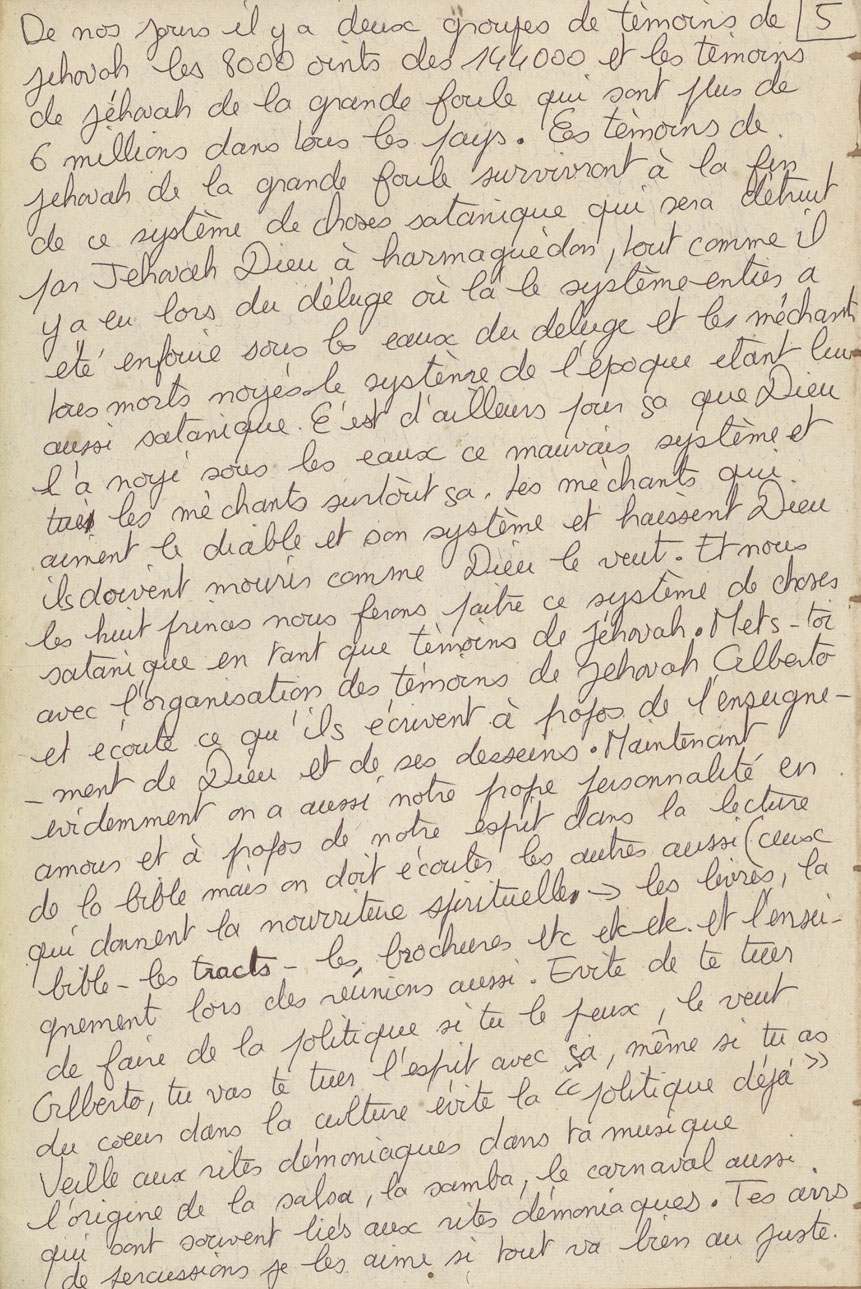 De nos jours il y a deux groupes de témoins de 5
jehovah les 8000 oints des 144000 et les témoins
de jéhovah de la grande foule qui sont plus de
6 millions dans tous les pays. Les témoins de
jehovah de la grande foule survivront à la fin
de ce système de choses satanique qui sera détruit
par Jehovah Dieu à harmaguédon, tout comme il
y a eu lors du déluge où là le système entier a
été enfouie sous les eaux du déluge et les méchants
tous morts noyés le système de l'époque étant lui
aussi satanique. C'est d'ailleurs pour ça que Dieu
l'a noyé sous les eaux ce mauvais système et
tués les méchants surtout ça. Les méchants qui
aiment le diable et son système et haïssent Dieu
ils doivent mourir comme Dieu le veut. Et nous
les huit princes nous ferons paître ce système de choses
satanique en tant que témoins de jéhovah. Mets-toi
avec l'organisation des témoins de jehovah Alberto
et écoute ce qu'ils écrivent à propos de l'enseigne-
-ment de Dieu et de ses desseins. Maintenant
evidemment on a aussi notre propre personnalité en
amour et à propos de notre esprit dans la lecture
de la bible mais on doit écouter les autres aussi (ceux
qui donnent la nourriture spirituelle. → les livres, la
bible - les tracts - les brochures etc etc-etc. et l'ensei-
gnement lors des réunions aussi. Evite de te tuer
de faire de la politique si tu le peux, le veut
Alberto, tu vas te tuer l'esprit avec ça, même si tu as
du coeur dans la culture évite la « politique déjà »
Veille aux rites démoniaques dans ta musique
l'origine de la salsa, la samba, le carnaval aussi
qui sont souvent liés aux rites démoniaques. Tes airs
de percussions je les aime si tout va bien au juste.